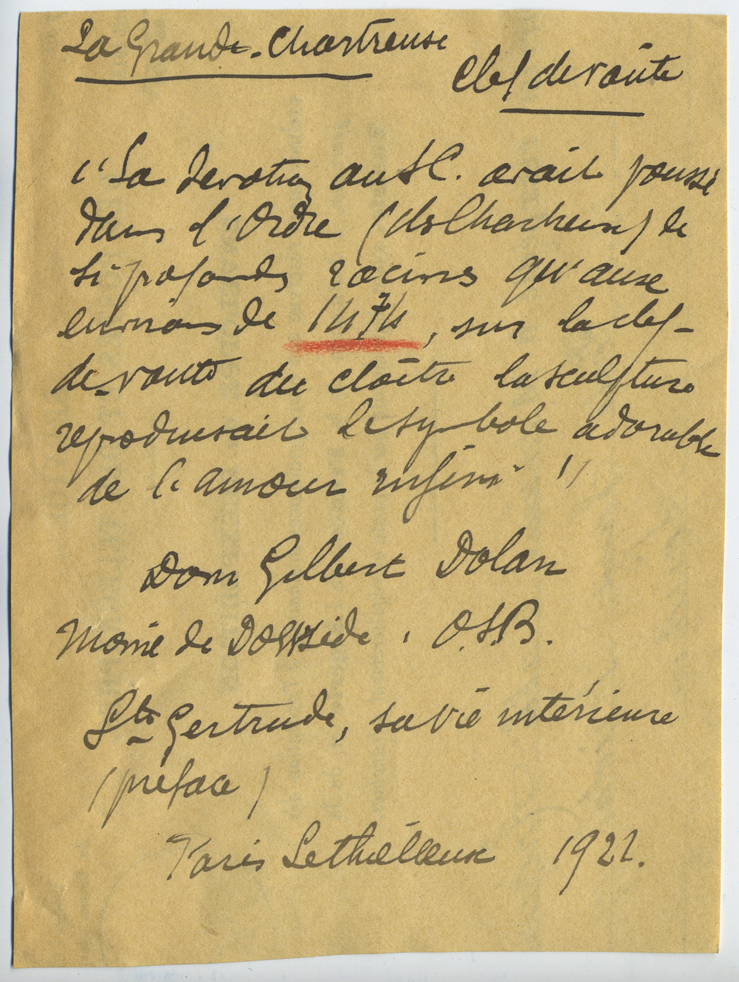 La Grande-Chartreuse
Clef de voûte
"La dévotion au S C. avait poussé
dans l'Ordre (des Chartreux) de
si profondes racines qu'aux
environs de 1474, sur la clef-
de-voute du cloître la sculpture
reproduisait le symbole adorable
de l'amour infini"
Dom Gilbert Dolan
Moine de Downside. O.S.B.
Ste Gertrude, sa vie intérieure
(préface)
Paris Lethielleux 1922.